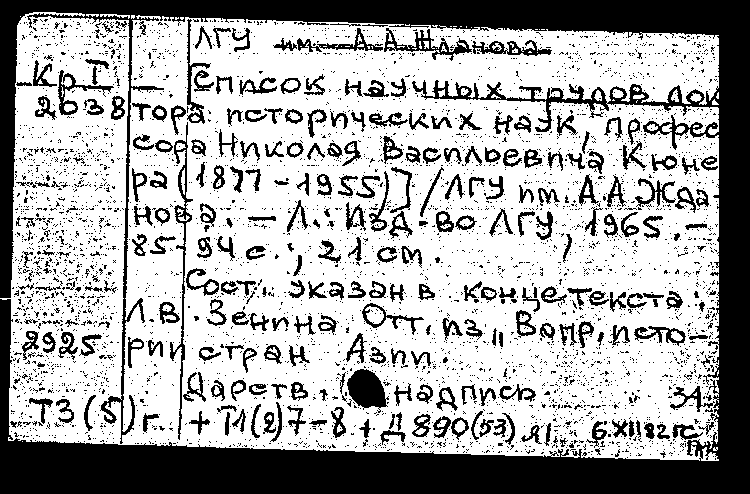 ЛГУ им. А А Жданова
Кр I — Список научных трудов док
2038 тора исторических наук, профес
сора Николая Васильевича Кюне
ра (1877-1955)] /ЛГУ им. А А Жда-
нова. — Л.: Изд-во ЛГУ, 1965. —
85-94 с.; 21 см.
Сост. указан в конце текста:
Л.В. Зенина. Отт. из „Вопр. исто-
2925 рии стран Азии.
Дарств. надпись 34
Т3(5)г. + Т1(2)7-8 + Д 890(53) я1 6.XII 82 гс